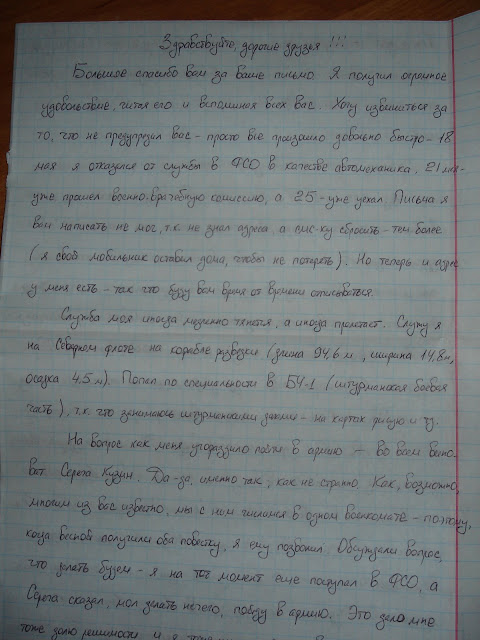 Здравствуйте, дорогие друзья!!!
Большое спасибо вам за ваше письмо. Я получил огромное
удовольствие, читая его и вспоминая всех вас. Хочу извиниться за
то, что не предупредил вас - просто все произошло довольно быстро - 18
мая я отказался от службы в ФСО в качестве автомеханика, 21 мая -
уже прошел военно-врачебную комиссию, а 25 - уже уехал. Письма я
вам написать не мог, т.к. не знал адреса, а смс-ку сбросить - тем более
(я свой мобильник оставил дома, чтобы не потерять). Но теперь и адрес
у меня есть - так что буду вам время от времени отписываться.
Служба моя иногда медленно тянется, а иногда пролетает. Служу я
на Северном флоте на корабле разведки (длина 94,6 м, ширина 14,8 м,
осадка 4.5 м). Попал по специальности в БЧ-1 (штурманская боевая
часть), т.к. что занимаюсь штурманскими делами - на картах рисую и тд.
На вопрос как меня угораздило пойти в армию - во всем вино-
ват Серега Кузин. Да-да, именно так, как не странно. Как, возможно,
многим из вас известно, мы с ним числимся в одном военкомате - поэтому,
когда весной получили оба повестку, я ему позвонил. Обсуждали вопрос,
что делать будем - я на тот момент еще поступал в ФСО, а
Серега сказал, мол делать нечего, пойду в армию. Это дало мне
тоже долю решимости и я